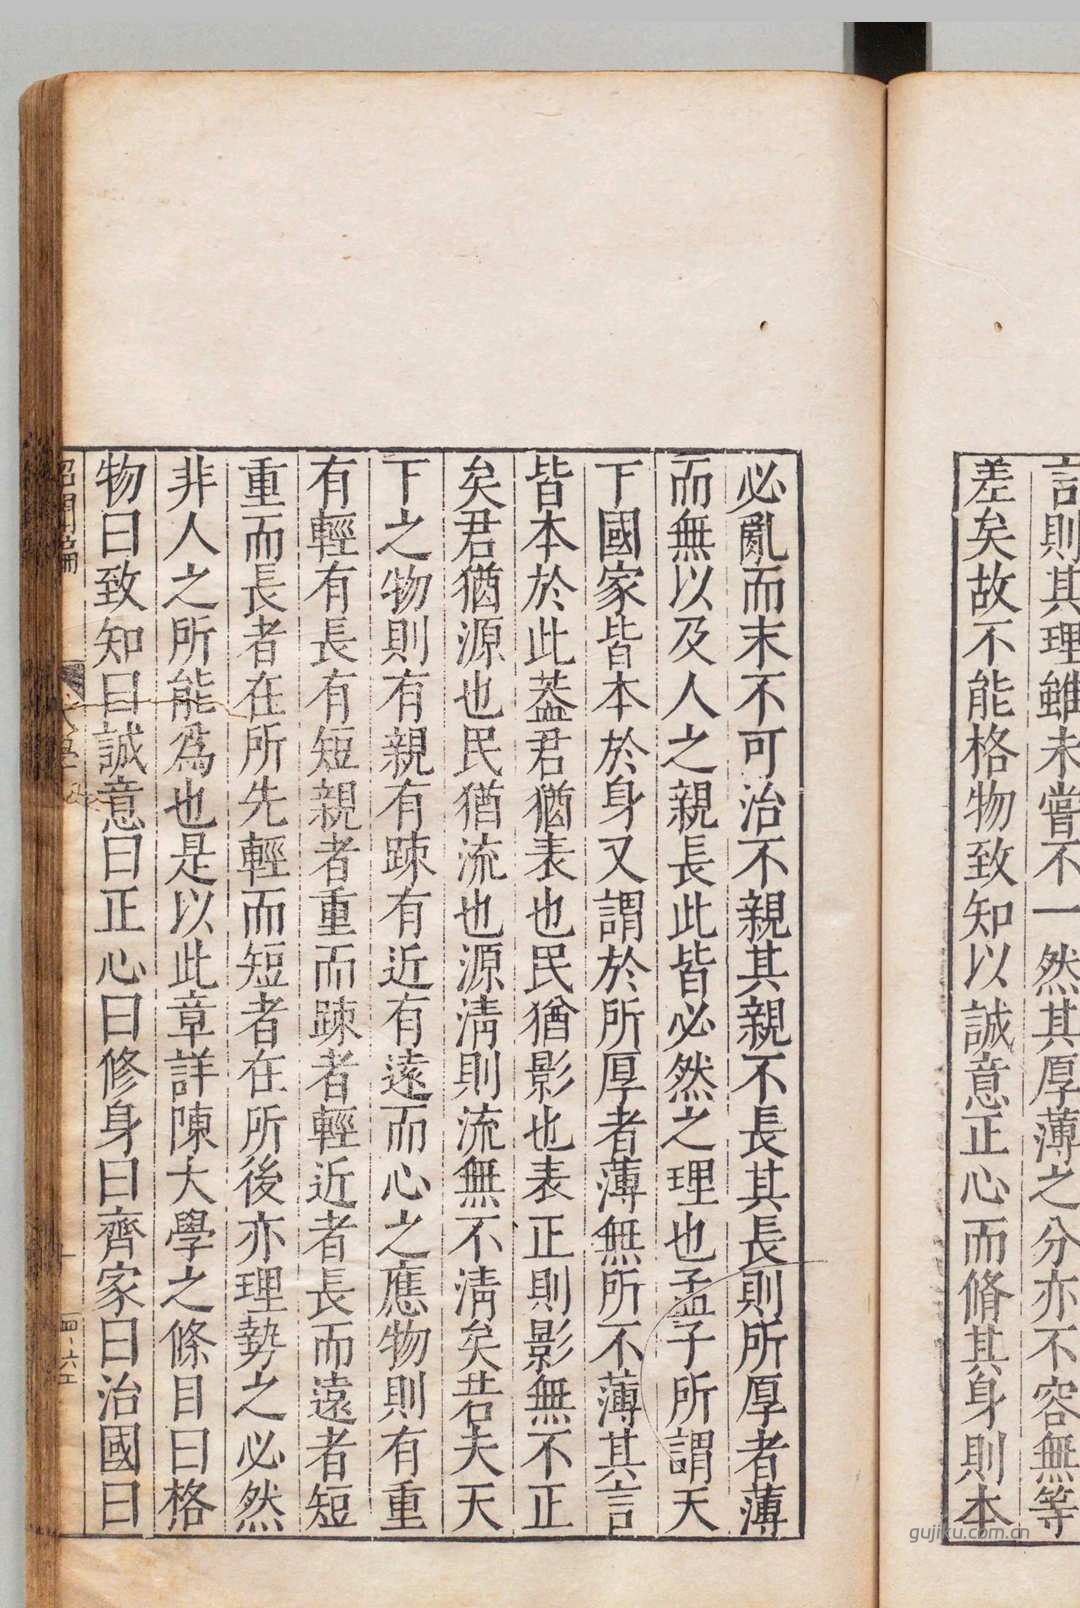 言則其理雖未嘗不一然其厚薄之分亦不容無等
差矣故不能格物致知以誠意正心而脩其身則本
必亂而末不可治不親其親不長其長則所厚者薄
而無以及人之親長此皆必然之理也孟子所謂天
下國家皆本於身又謂於所厚者薄無所不薄其言
皆本於此葢君猶表也民猶影也表正則影無不正
矣君猶源也民猶流也源淸則流無不淸矣若夫天
下之物則有親有踈有近有遠而心之應物則有重
有輕有長有短親者重而踈者輕近者長而遠者短
重而長者在所先輕而短者在所後亦理勢之必然
非人之所能爲也是以此章詳陳大學之條目曰格
物曰致知曰誠意曰正心曰修身曰齊家曰治國曰
gujiku.com.cn